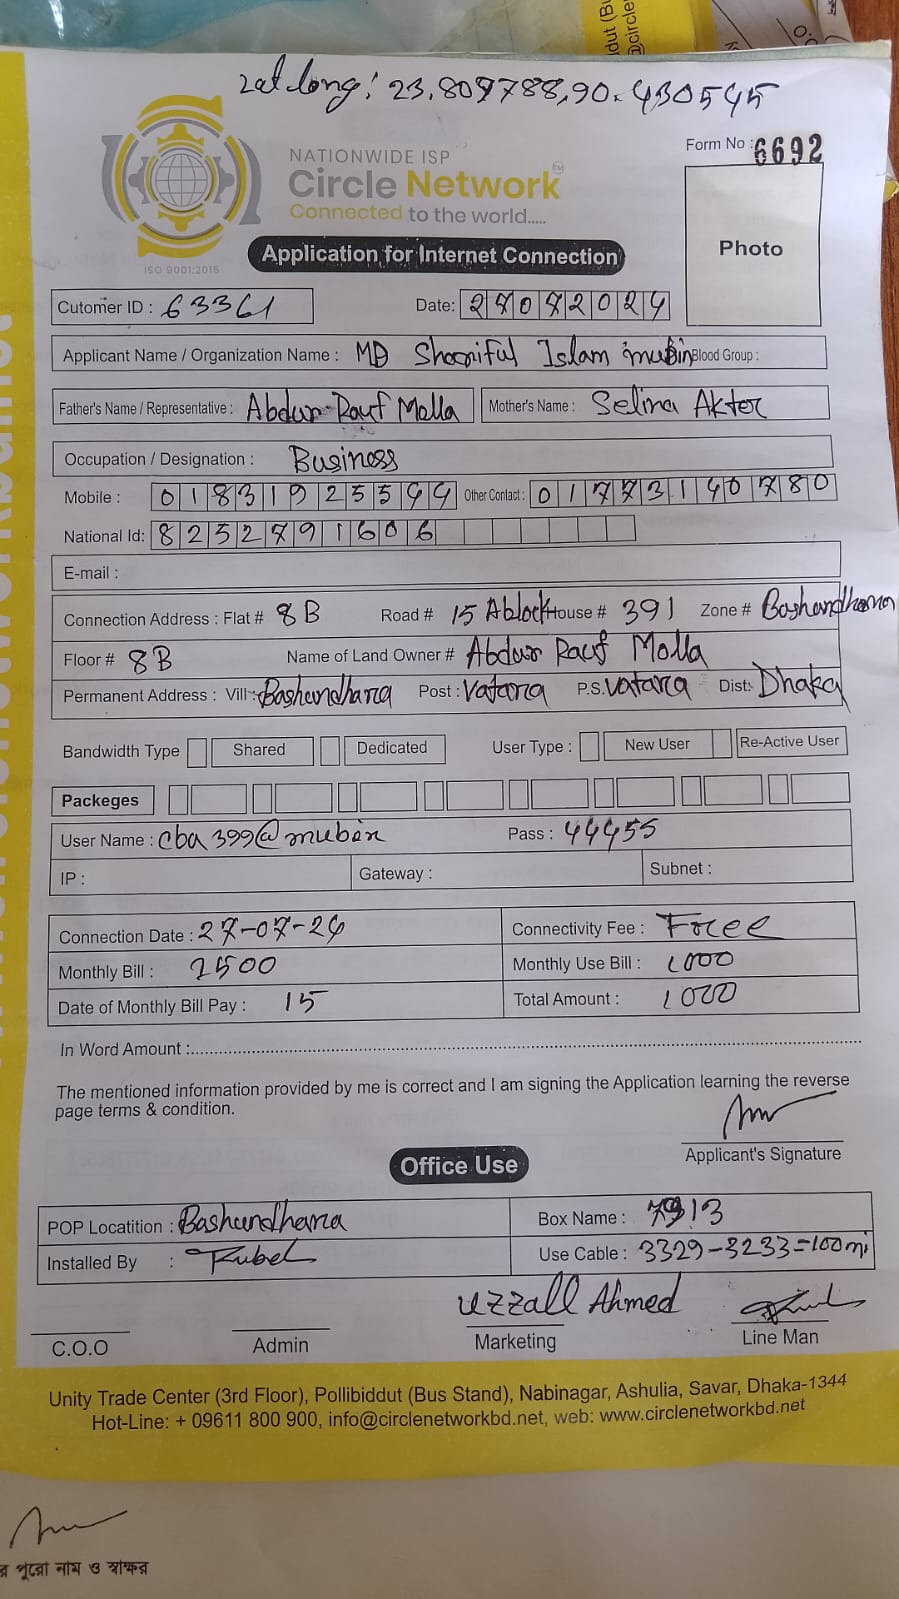 Lat long: 23.809788, 90.430545
NATIONWIDE ISP
Circle Network TM
Connected to the world.....
ISO 9001:2015
Form No : 6692
Photo
Application for Internet Connection
Cutomer ID : 63361
Date: 27072024
Applicant Name / Organization Name : MD Shoriful Islam mubin Blood Group :
Father's Name / Representative : Abdur Rauf Molla Mother's Name : Selina Akter
Occupation / Designation : Business
Mobile : 01831925544 Other Contact : 01773140780
National Id: 8252791606
E-mail :
Connection Address : Flat # 8B Road # 15 Ablock House # 391 Zone # Bashundhara
Floor # 8B Name of Land Owner # Abdur Rauf Molla
Permanent Address : Vill: Bashundhara Post : Vatara P.S. Vatara Dist: Dhaka
Bandwidth Type Shared Dedicated User Type : New User Re-Active User
Packeges
User Name : cba399@mubin Pass : 44455
IP : Gateway : Subnet :
Connection Date : 27-07-24 Connectivity Fee : Free
Monthly Bill : 2500 Monthly Use Bill : 1000
Date of Monthly Bill Pay : 15 Total Amount : 1000
In Word Amount :
The mentioned information provided by me is correct and I am signing the Application learning the reverse
page terms & condition.
Applicant's Signature
Office Use
POP Locatition : Bashundhara Box Name : 7913
Installed By : Rubel Use Cable : 3329-3233=100mi
Uzzall Ahmed
C.O.O Admin Marketing Line Man
Unity Trade Center (3rd Floor), Pollibiddut (Bus Stand), Nabinagar, Ashulia, Savar, Dhaka-1344
Hot-Line: + 09611 800 900, info@circlenetworkbd.net, web: www.circlenetworkbd.net
পুরো নাম ও স্বাক্ষর